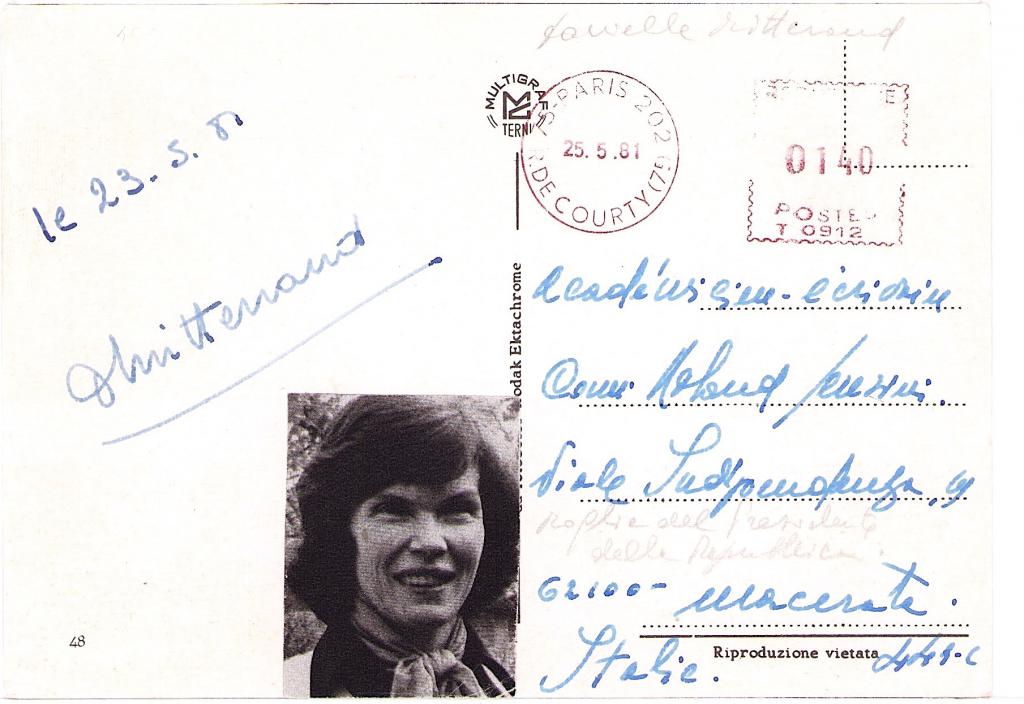 Mitterrand
MULTIGRAF
TERNI
75-PARIS 202
25.5.81
R. DE COURTY (75)
R E
0140
POSTE
T 0912
le 23.5.81
DMitterrand
Kodak Ektachrome
Académicien-écrivain
Com. Roland
Viale Indipendenza,
moglie del Presidente
della Repubblica.
62100- Macerata.
Italie.
48
Riproduzione vietata